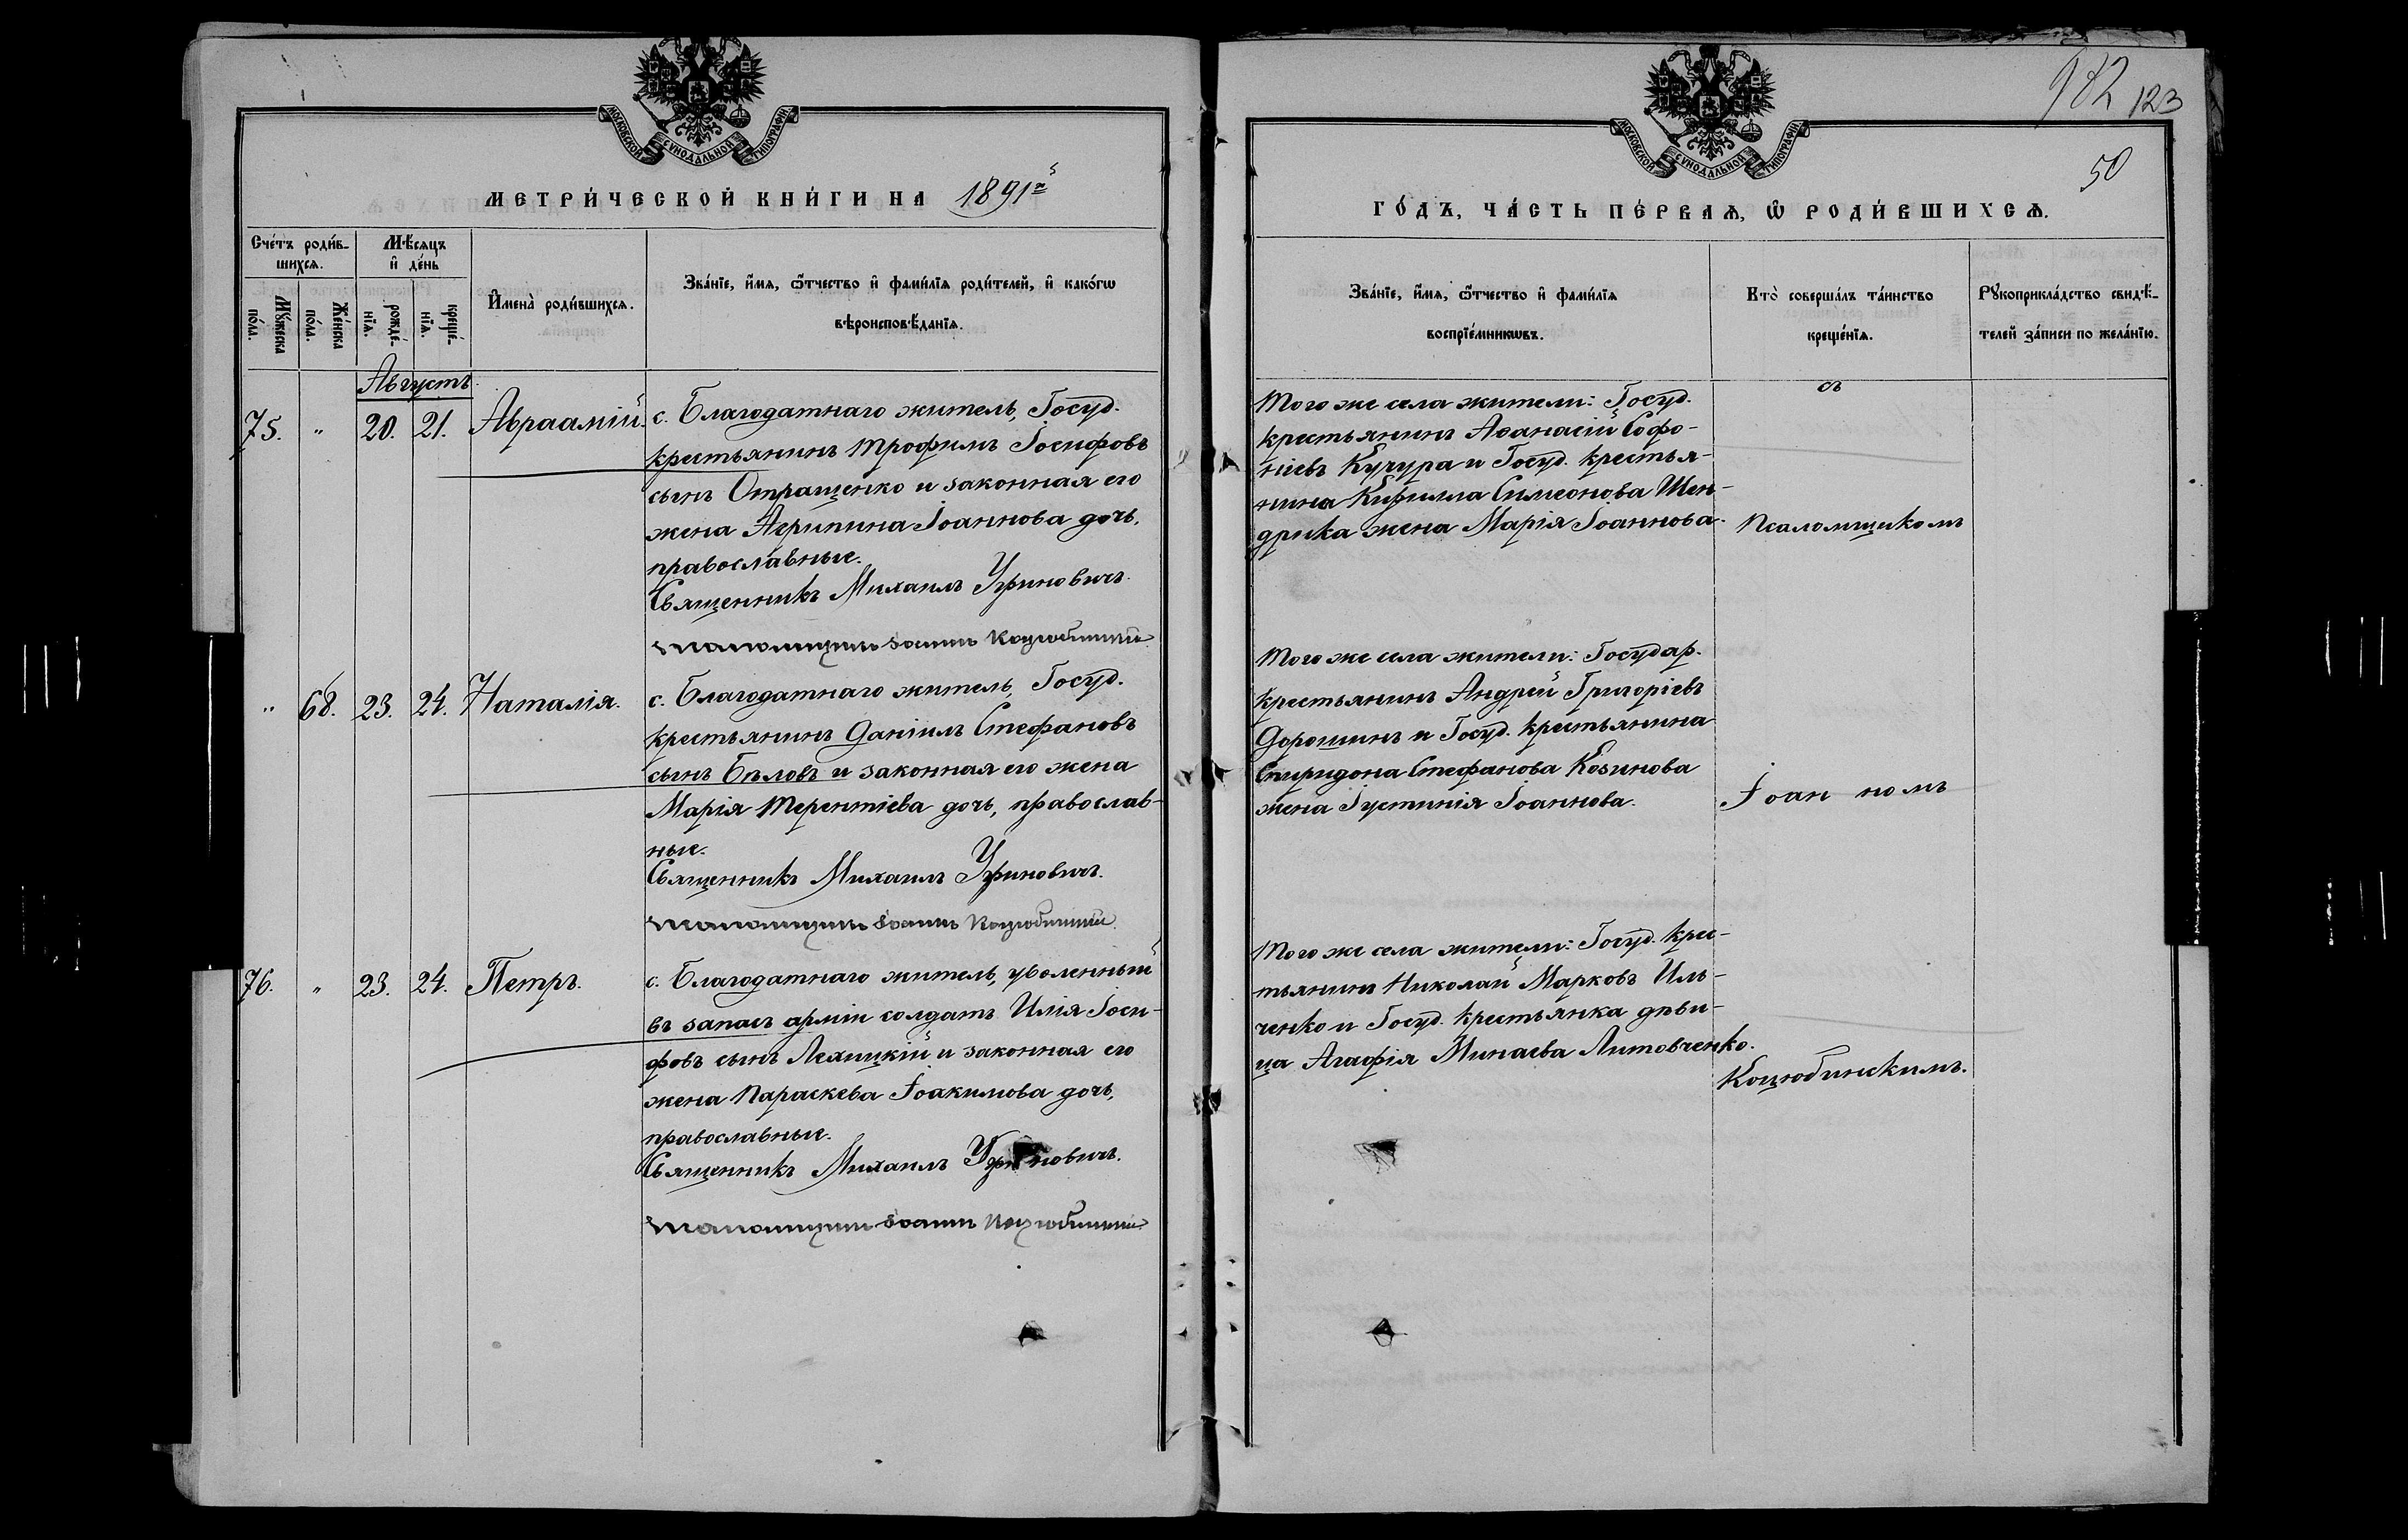 МОСКОВСКОЙ СУНОДАЛЬНОЙ ТИПОГРАФІИ
МЕТРИ́ЧЕСКОЙ КНИ́ГИ НА 1891й
Сче́тъ роди́в-
шихсѧ.
Мѣ́сѧцъ
и҆ де́нь
Мꙋ́жеска
по́ла.
Же́нска
по́ла.
рожде́-
нїѧ.
креще́-
нїѧ.
И҆мена̀ роди́вшихсѧ.
Зва́нїе, и҆́мѧ, ѻ҆́тчество и҆ фами́лїѧ роди́телей, и҆ како́гѡ
вѣроисповѣ́данїѧ.
Августъ.
75. " 20. 21. Авраамій.
с. Благодатнаго житель, Госуд.
крестьянинъ Трофимъ Іосифовъ
сынъ Отращенко и законная его
жена Агрипина Іоаннова дочь,
православные.
Священникъ Михаилъ Угриновичъ.
Псаломщикъ Іоаннъ Коцюбинскій
" 68. 23. 24. Наталія.
с. Благодатнаго житель, Госуд.
крестьянинъ Даніилъ Стефановъ
сынъ Бѣловъ и законная его жена
Марія Терентіева дочь, православ-
ные.
Священникъ Михаилъ Угриновичъ.
Псаломщикъ Іоаннъ Коцюбинскій.
76. " 23. 24. Петръ.
с. Благодатнаго житель, уволенный
въ запасъ арміи солдатъ Илія Іоси-
фовъ сынъ Лехицкій и законная его
жена Параскева Іоакимова дочь,
православные.
Священникъ Михаилъ Угриновичъ.
Псаломщикъ Іоаннъ Коцюбинскій
982 123
50
МОСКОВСКОЙ СУНОДАЛЬНОЙ ТИПОГРАФІИ
ГО́ДЪ, ЧА́СТЬ ПЕ́РВАѦ, Ѡ҆ РОДИ́ВШИХСѦ.
Зва́нїе, и҆́мѧ, ѻ҆́тчество и҆ фами́лїѧ
воспрїе́мникѡвъ.
Кто̀ соверша́лъ та́инство
креще́нїѧ.
Рꙋкоприкла́дство свидѣ́-
телей за́писи по жела́нїю.
Того же села жители: Госуд.
крестьянинъ Аѳанасій Софо-
ніевъ Кучура и Госуд. крестья-
нина Кирилла Симеонова Шен-
дрика жена Марія Іоаннова.
съ
Псаломщикомъ
Того же села жители: Государ.
крестьянинъ Андрей Григоріевъ
Дорошинъ и Госуд. крестьянина
Спиридона Стефанова Козинова
жена Іустинія Іоаннова.
Іоан номъ
Того же села жители: Госуд. крес-
тьянинъ Николай Марковъ Иль-
ченко и Госуд. крестьянка дѣви-
ца Агафія Минаева Литовченко.
Коцюбинскимъ.